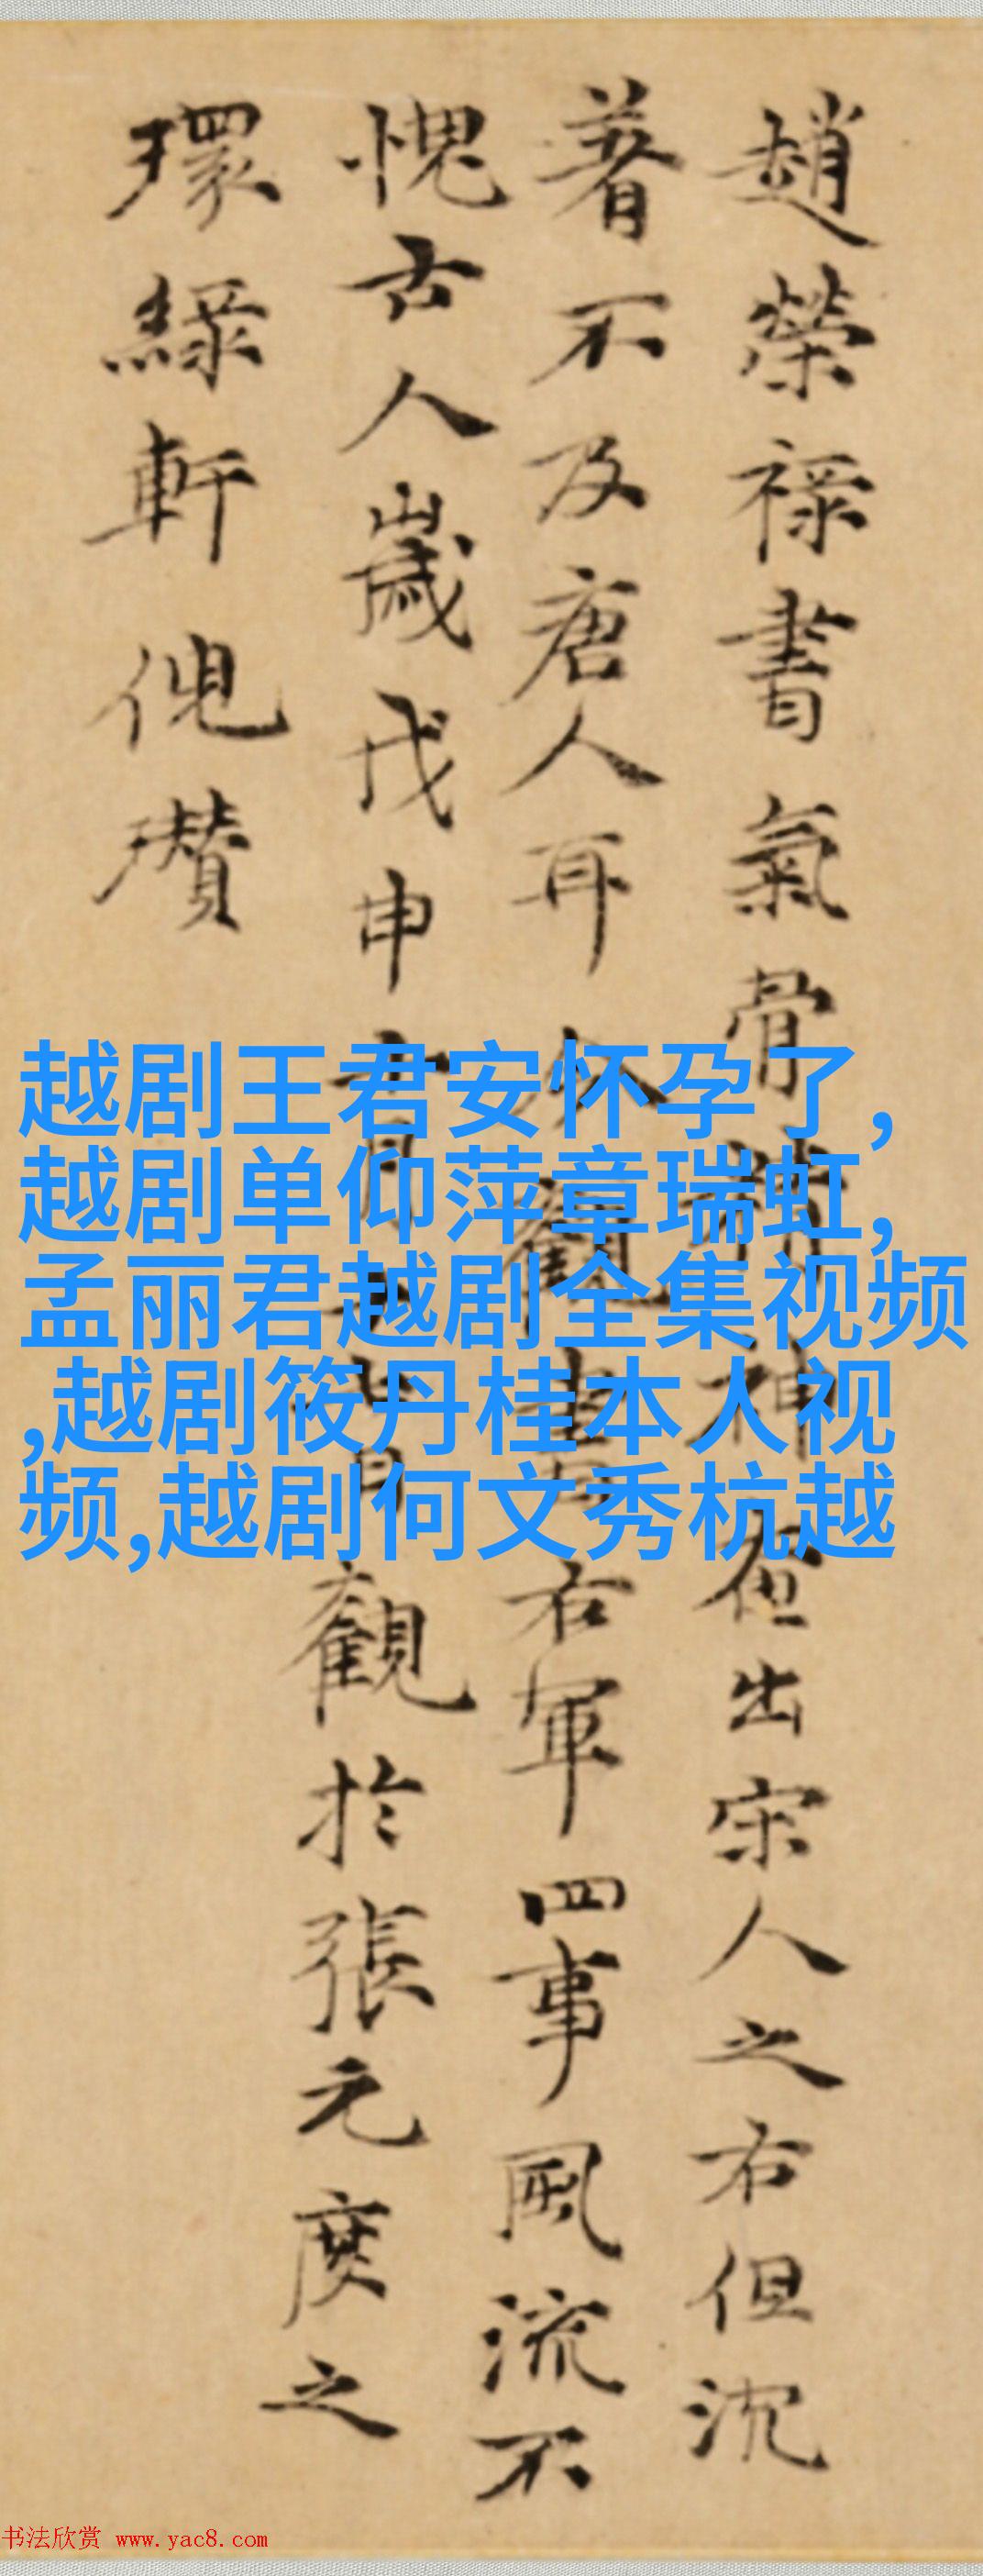 趙榮祿書氣骨精神出宋人之右但沈
著不及唐人耳觀書右軍四事風流不
愧古人歲戊申月日觀於張元度之
環綠軒倪瓚
越剧王君安怀孕了,
越剧单仰萍章瑞虹,
孟丽君越剧全集视频
,越剧筱丹桂本人视
频,越剧何文秀杭越
书法欣赏 www.yac8.com